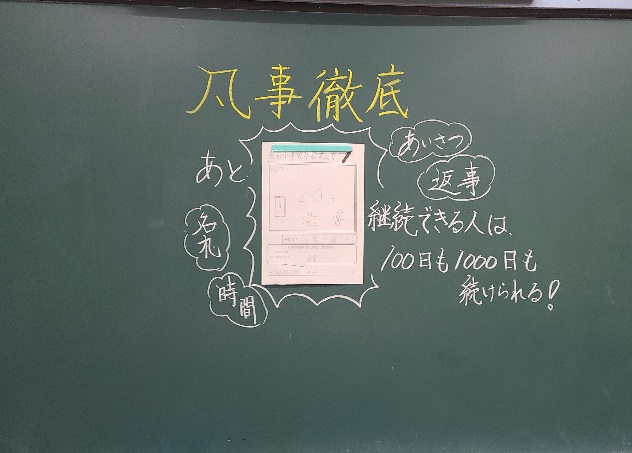 凡事徹底
あいさつ
返事
あと
名札
時間
継続できる人は、
100日も1000日も
続けられる!